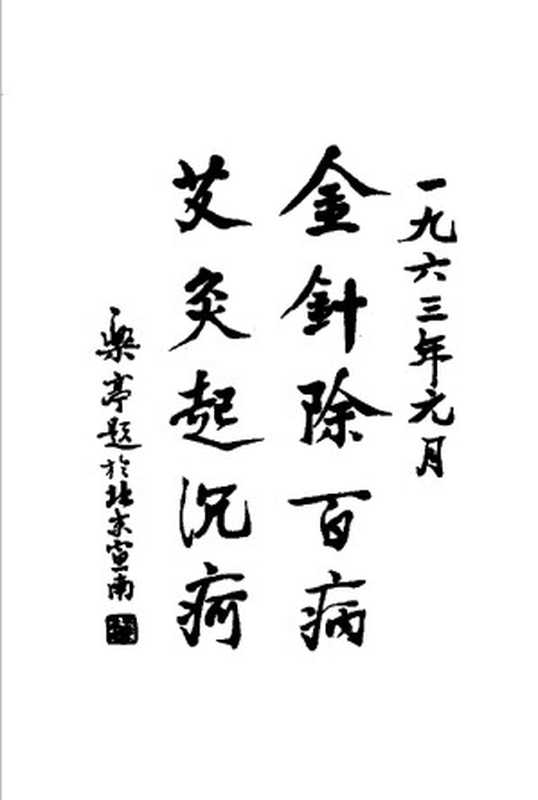 一九六三年元月
金針除百病
艾灸起沉疴
樂亭题於北京宣南